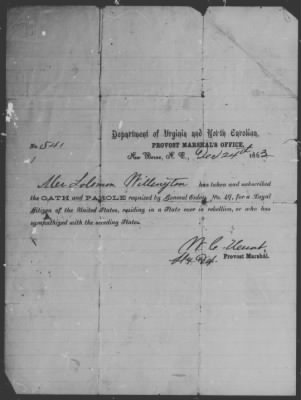 Department of Virginia and North Carolina,
No. 541
PROVOST MARSHAL'S OFFICE,
New Berne, N. C., Dec 24th 1863
Solomon has taken and subscribed
the OATH and PAROLE required by General Orders No. 49, for a Loyal
Citizen of the United States, residing in a State now in rebellion, or who has
sympathized with the seceding States.
W. C.
Provost Marshal.